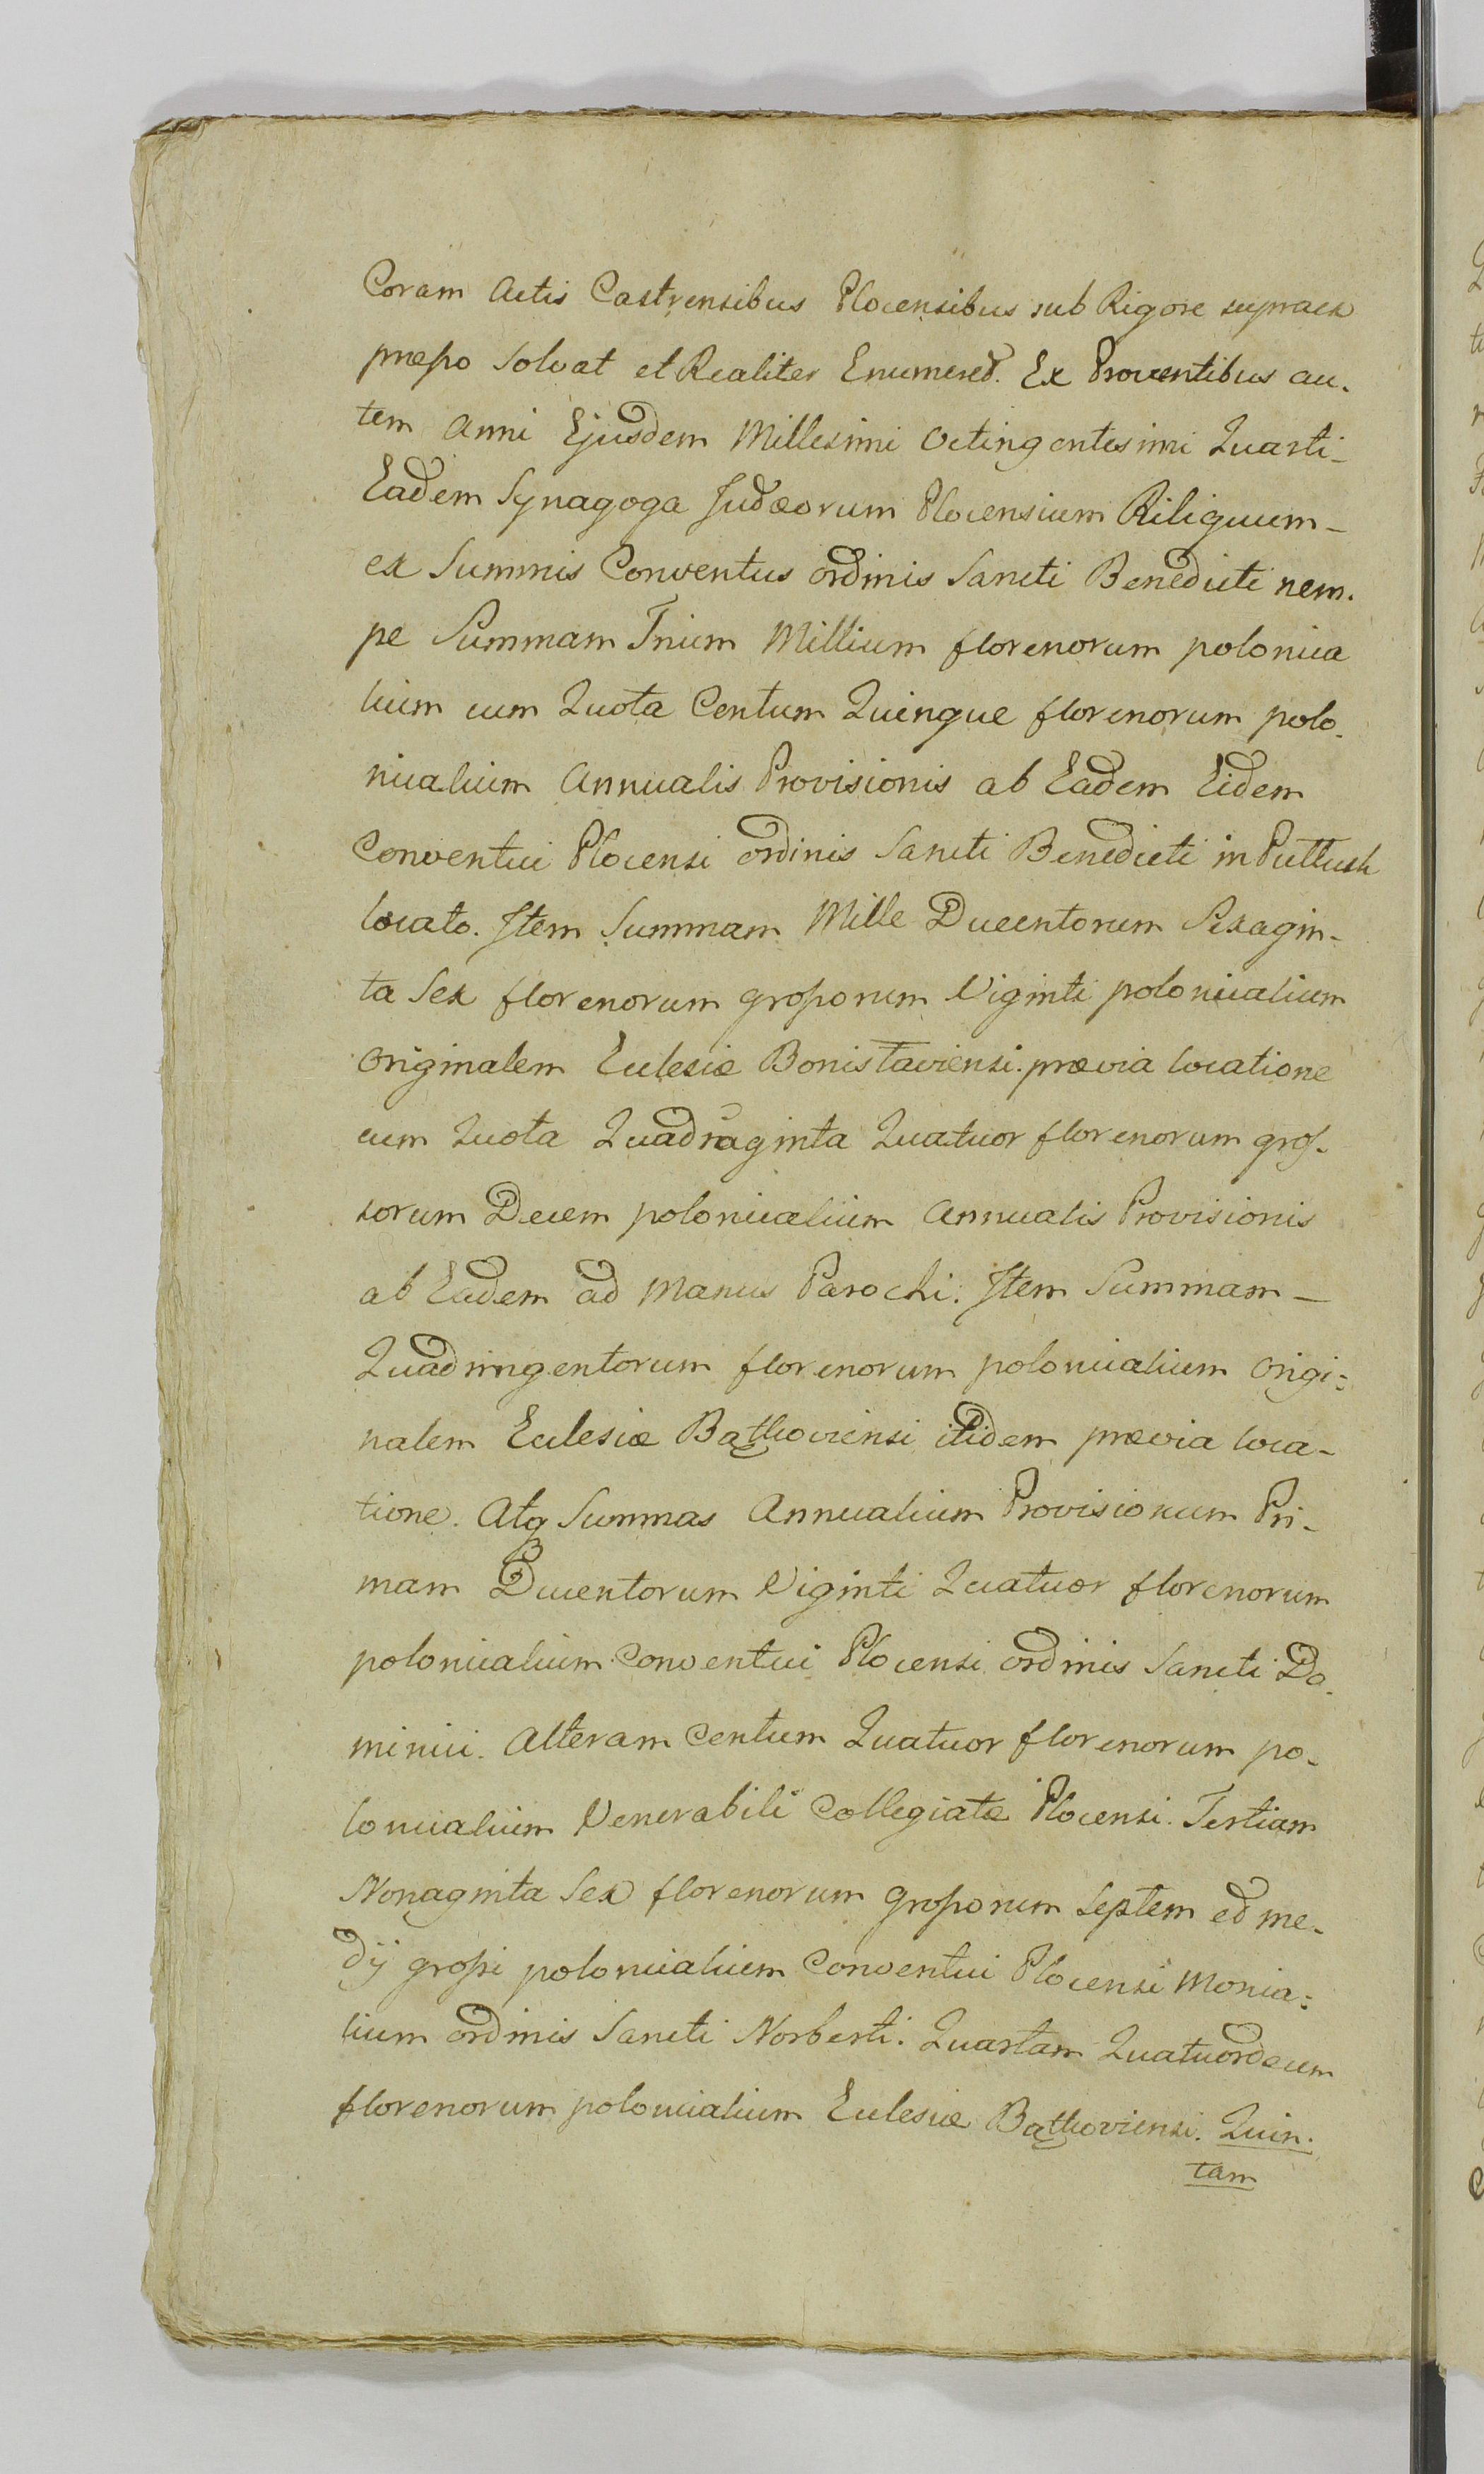 Coram Actis Castrensibus Plocensibus sub Rigore supraex
præsso solvat et Realiter Enumered. Ex Proventibus au-
tem anni Ejusdem Millesimi octingentesimi Quarti-
Eadem Synagoga Judæorum Plocensium Riliquum-
ex Summis Conventus ordinis Sancti Benedicti nem-
pe Summam Trium Millium florenorum polonica
lium cum Quota Centum Quinque florenorum polo-
nicalium Annualis Provisionis ab Eadem Eidem
Conventui Plocensi ordinis Sancti Benedicti in Pultusk
locato. Item Summam Mille Ducentorum Sexagin-
ta Sex florenorum grossorum Viginti polonicalium
originalem Eclesiæ Bonislaviensi prævia locatione
cum Quota Quadraginta Quatuor florenorum gros-
sorum Decem polonicalium Annualis Provisionis
ab Eadem ad Manus Parochi. Item Summam-
Quadringentorum florenorum polonicalium origi:
nalem Eclesiæ Bątkoviensi itidem prævia loca-
tione. Atq Summas Annualium Provisionum Pri-
mam Ducentorum Viginti Quatuor florenorum
polonicalium Conventui Plocensi ordinis Sancti Do-
minici. Alteram Centum Quatuor florenorum po-
lonicalium Venerabili Collegiatæ Plocensi. Tertiam
Nonaginta Sex florenorum grossorum Septem ed me-
dij grossi polonicalium Conventui Plocensi Monia:
lium ordinis Sancti Norberti. Quartam Quatuordecim
florenorum polonicalium Eclesiæ Bątkoviensi. Quin-
tam